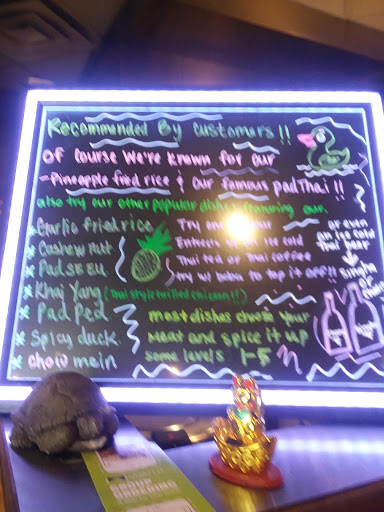 Recommended By customers!!
Of course we're known for our
-Pineapple fried rice & our famous pad Thai!!
also try our other popular dishes featuring our.
* Garlic fried rice
* Cashew nut
* Pad see eu
* Khai Yang (Thai style grilled chicken!!)
* Pad Ped
* Spicy duck
* chow mein
Try
Entrees ice cold
Thai tea or Thai coffee
try w/ boba to top it off!!
or even
ice cold
thai beer
Singha
most dishes choose your
meat and spice it up
some levels 1-5